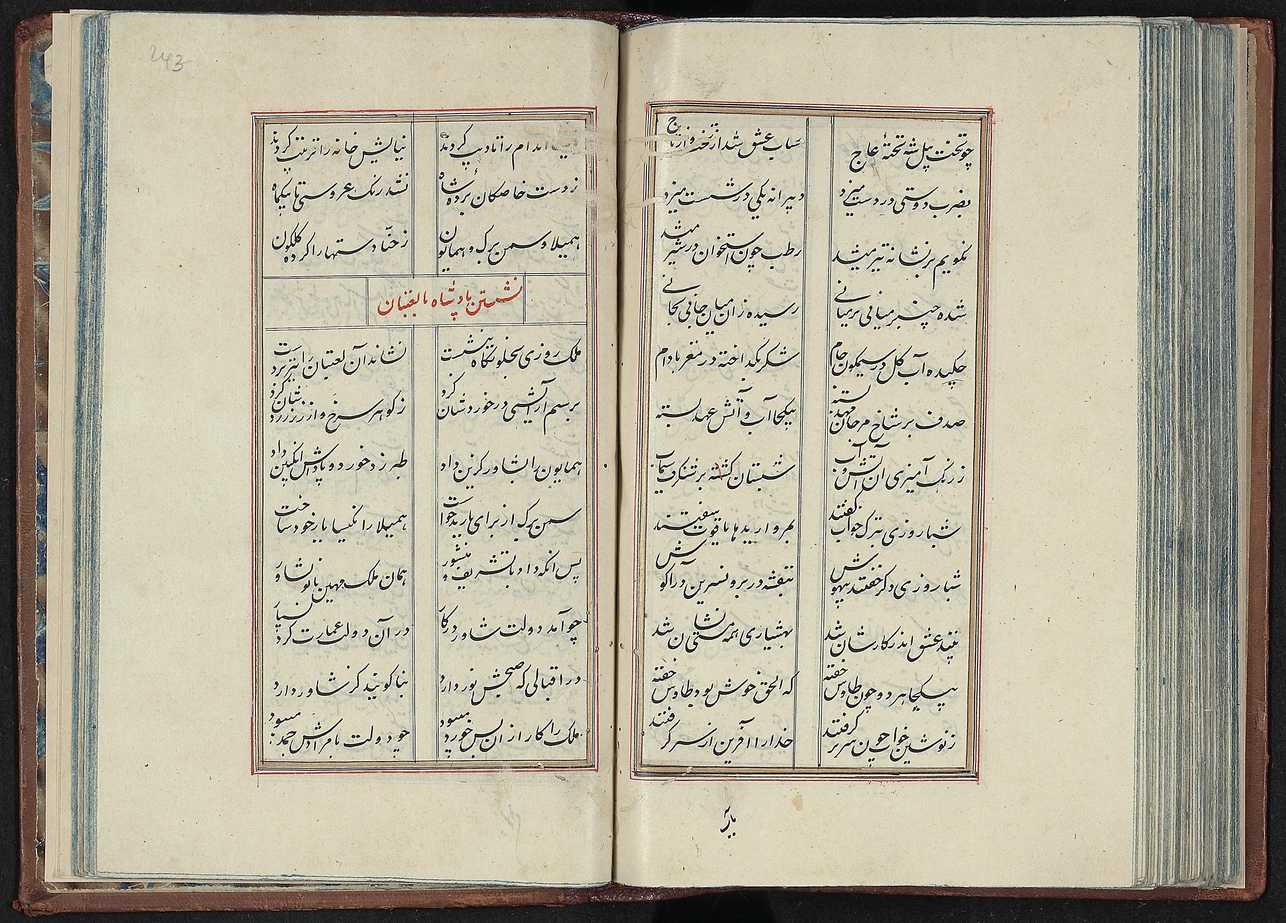 چو تخت پیل شه تختهٔ عاج حساب عشق شد از تخت و از تاج
بضرب دوستی در دست میزد دبیرانه یکی در شست میزد
نگویم بر نشانه تیر میشد رطب چون استخوان در شیر میشد
شده چنبر میانی بر میانی رسیده زان میان جانی بجانی
چکیده آب گل در سیمگون جام شکر بگداخته در مغز بادام
صدف بر شاخ مرجان مهد بسته بیکجا آب و آتش عهد بسته
ز رنگ آمیزی آن آتش و آب شبستان گشته پر شنگرف و سیماب
شبا روزی بترک خواب گفتند بمرواریدها یاقوت سفتند
شبا روزی دگر خفتند بیهوش بنفشه در بر و نسرین در آغوش
عشق اندر کارشان شد بهشیاری همه مستی نشان شد
بیکجا هر دو چون طاوس خفته که الحق خوش بود طاوس خفته
ز نوشین خواب چون سر بر گرفتند خدا را آفرین از سر گرفتند
بآب
243
اندام را تادیب کردند نیایش خانه را ترتیب کردند
ز دست خاصگان پرده شاه نشد رنگ عروسی تا بیکماه
همیلا و سمن برک و همایون ز حنا دستها را کرده گلگون
نشستن پادشاه با لعبتان
ملک روزی بخلوتگاه بنشست نشاند آن لعبتان را نیز بر دست
برسم آرایشی در خوردشان کرد ز گوهر سرخ و از زر زردشان کرد
همایون را بشاور گزین داد طبرزد خورد و پاداش انگبین داد
سمن برک از برای باربد خواست همیلا را نکیسا یار خود ساخت
پس آنگه داد با تشریف و منشور همان ملک مهین بانو بشاور
چو آمد دولت شاور در کار در آن دولت عمارت کرد بسیار
در اقبالی که صبحش نور دارد بنا گویند کز شاور دارد
ملک را کار از ان پس چو دولت با مرادش